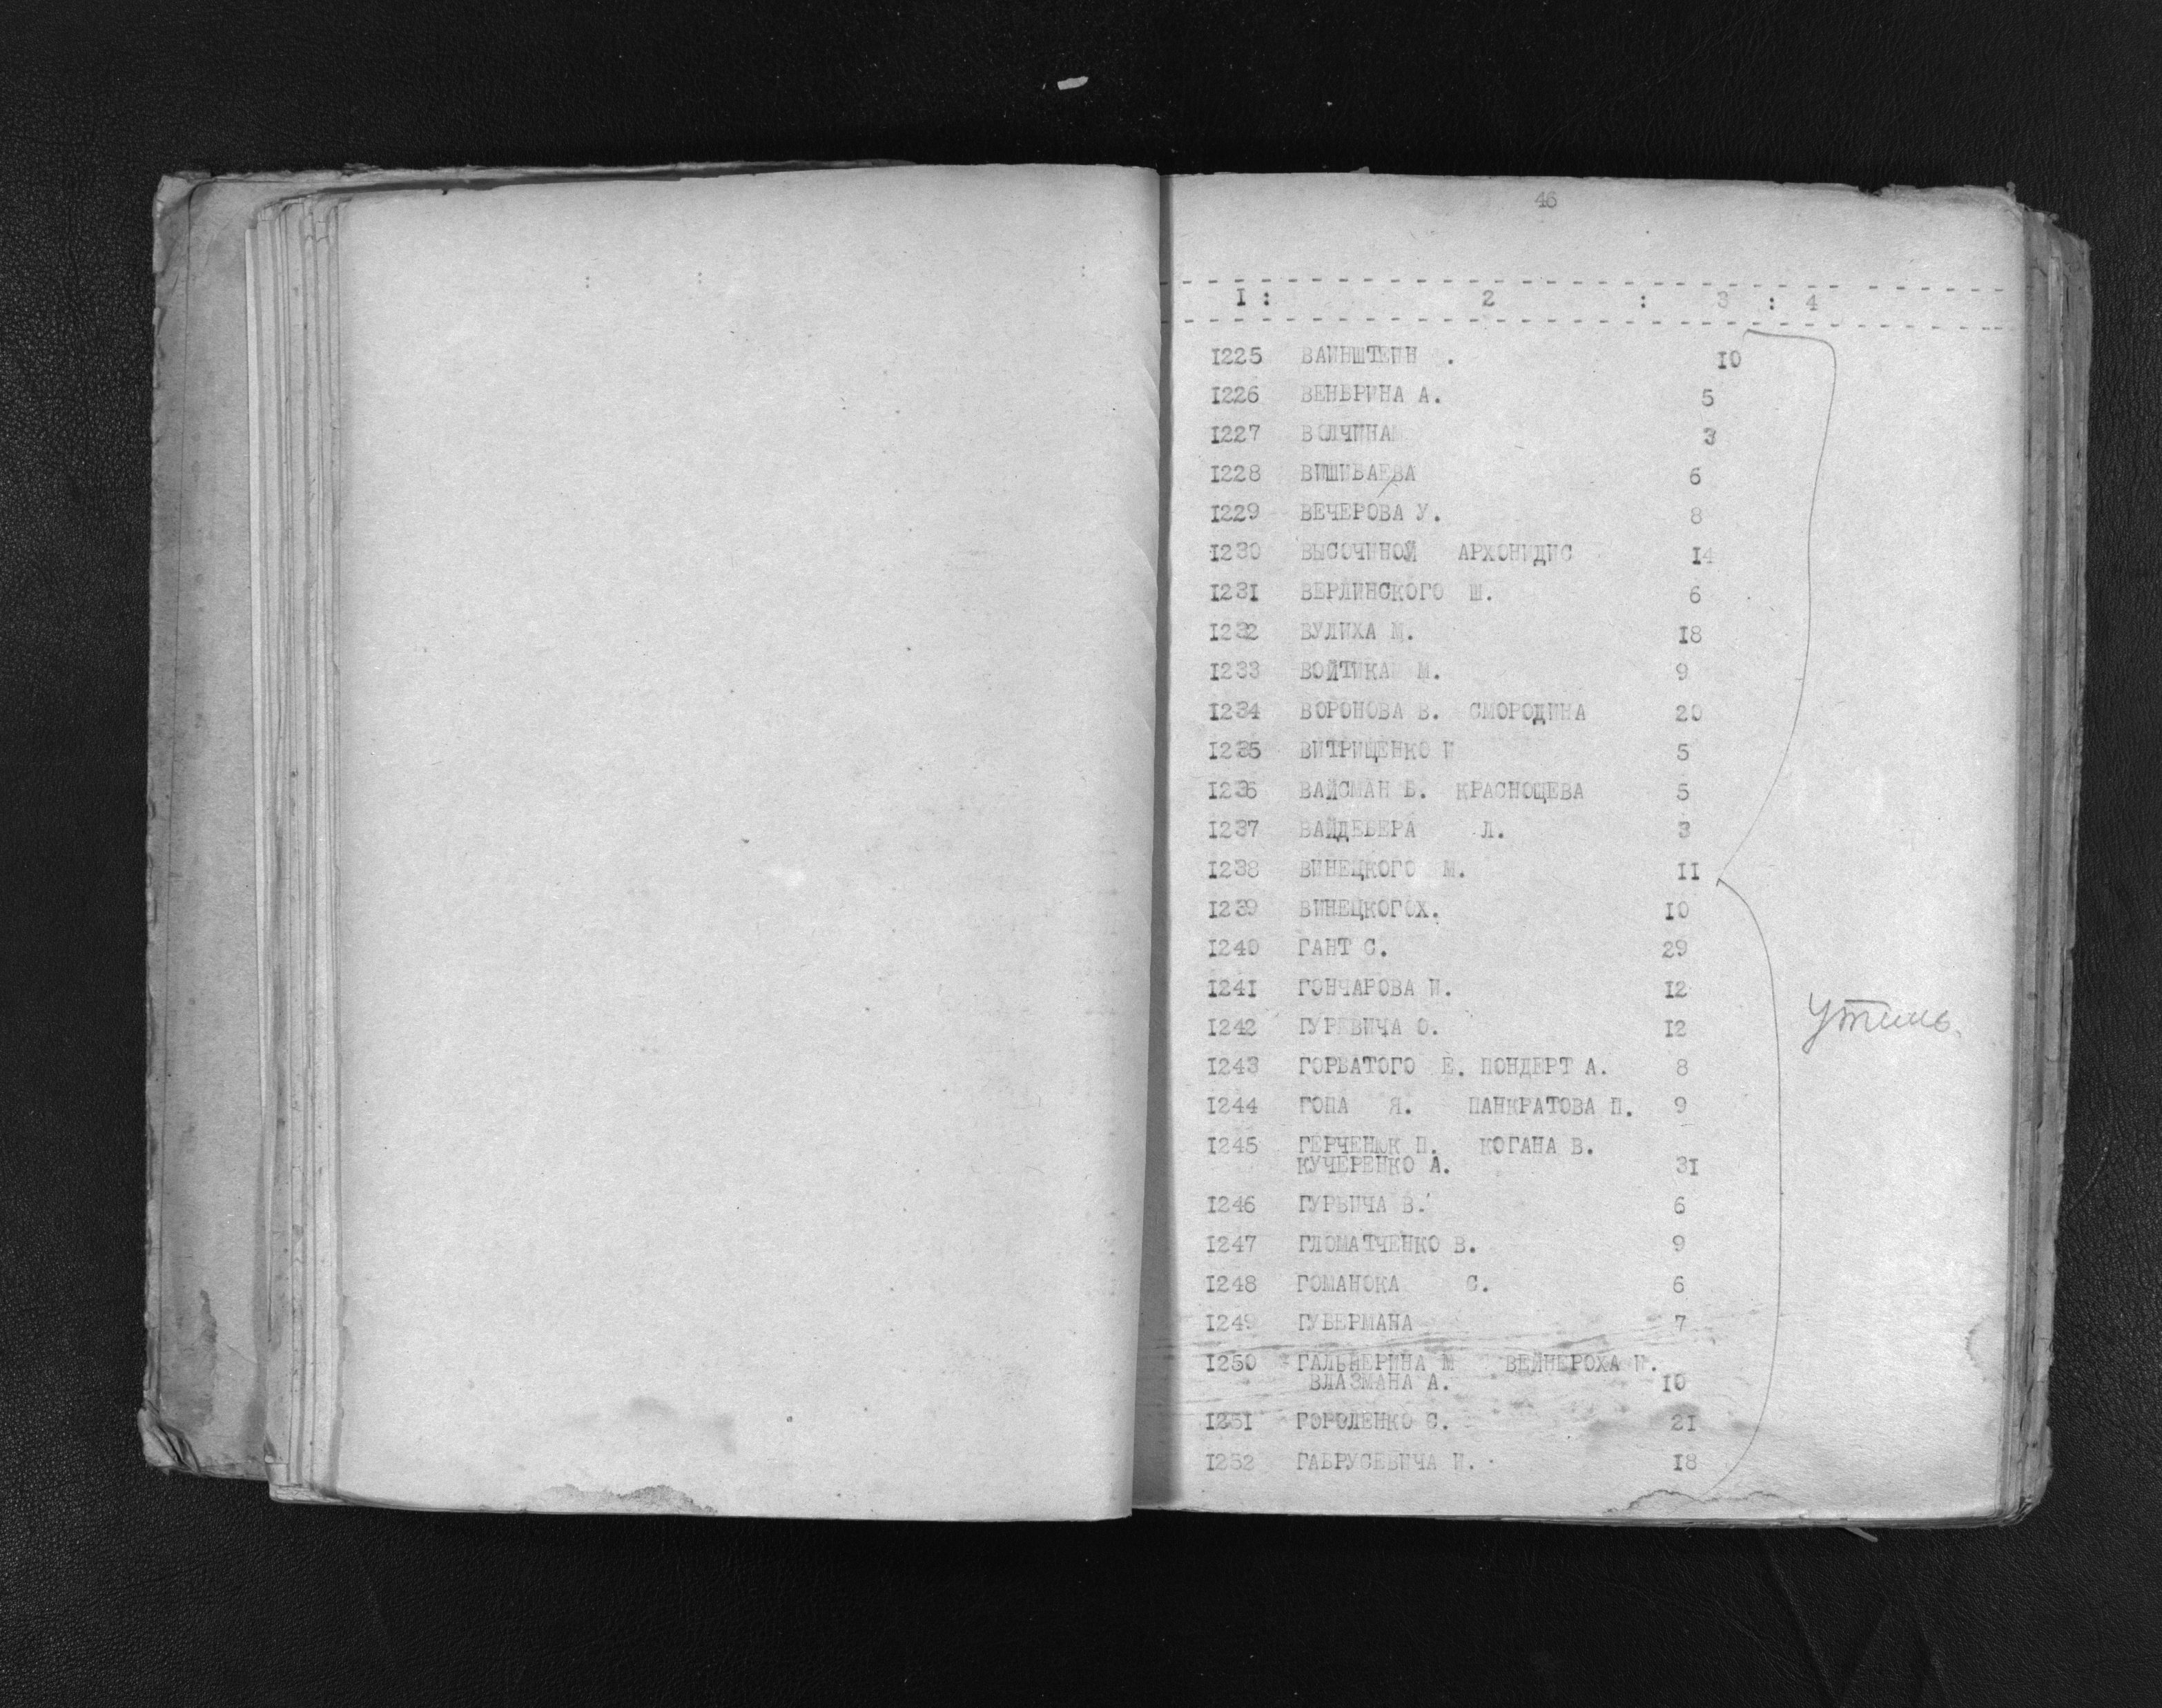 46
I : 2 : 3 : 4
I225 ВАЙНШТЕЙН . IO
I226 ВЕНБРИНА А. 5
I227 ВОЛЧИНА 3
I228 ВИШИВАЕВА 6
I229 ВЕЧЕРОВА У. 8
I230 ВЫСОЧИНОЙ АРХОНИДИС I4
I23I ВЕРЛИНСКОГО Ш. 6
I232 ВУЛИХА М. I8
I233 ВОЙТИКА М. 9
I234 ВОРОНОВА В. СМОРОДИНА 20
I235 ВИТРИЩЕНКО И 5
I236 ВАЙСМАН Б. КРАСНОЩЕВА 5
I237 ВАЙДЕБЕРА Л. 3
I238 ВИНЕЦКОГО М. II
I239 ВИНЕЦКОГОХ. IO
I240 ГАНТ С. 29
I24I ГОНЧАРОВА И. I2
I242 ГУРЕВИЧА О. I2
I243 ГОРБАТОГО Е. ПОНДЕРТ А. 8
I244 ГОПА Я. ПАНКРАТОВА П. 9
I245 ГЕРЧЕНЮК П. КОГАНА В.
КУЧЕРЕНКО А. 3I
I246 ГУРВИЧА В. 6
I247 ГЛОМАТЧЕНКО В. 9
I248 ГОМАНОКА С. 6
I249 ГУБЕРМАНА 7
I250 ГАЛЬПЕРИНА М ВЕЙНЕРОХА И.
ВЛАЗМАНА А. IO
I25I ГОРОЛЕНКО С. 2I
I252 ГАБРУСЕВИЧА И. I8
Утиль.